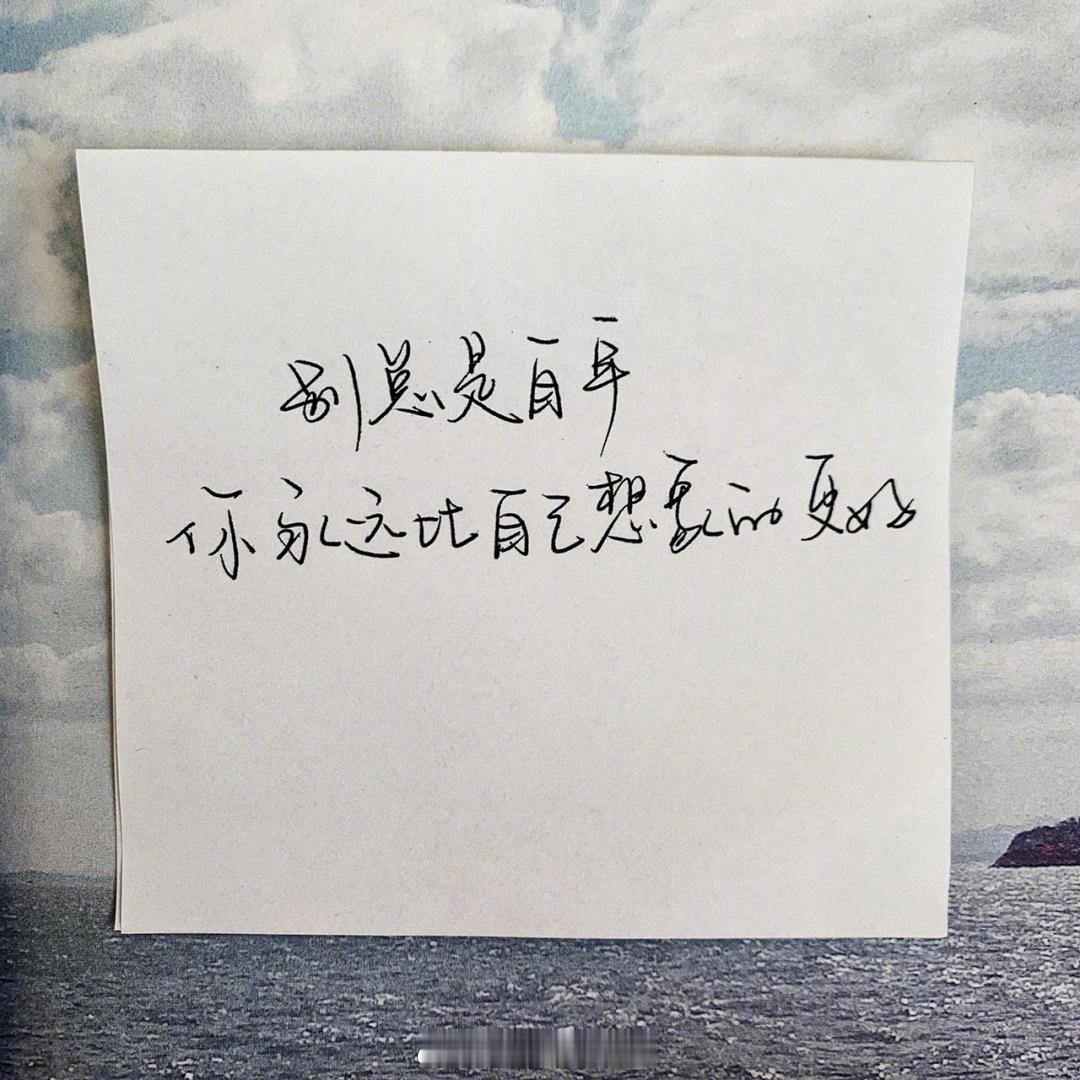 别总是自卑
你永远比自己想象的更好